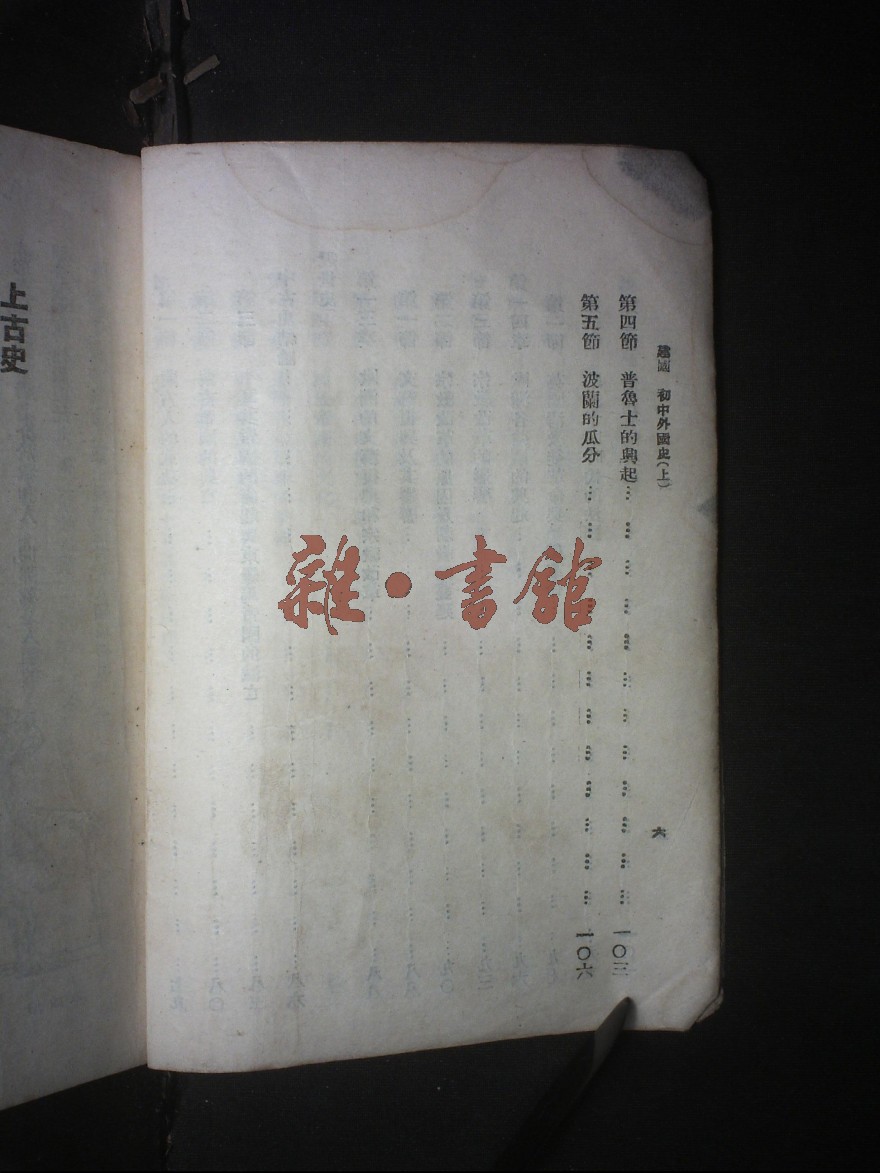 建國 初中外國史(上)
六
第四節 普魯士的興起…………………………………一〇三
第五節 波蘭的瓜分…………………………………一〇六
上古史
雜·書館